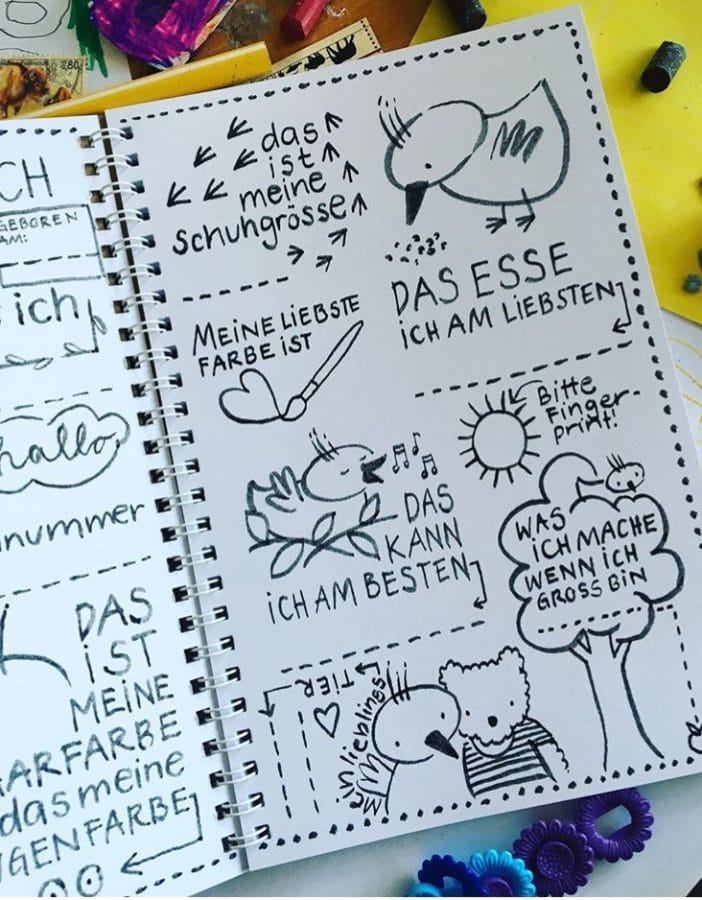 CH
GEBOREN
AM:
ich
hallo
nummer
DAS
iST
MEiNE
ARFARBE
das meine
UGENFARBE
das
ist
meine
schuhgrösse
DAS ESSE
iCH AM LiEBSTEN
MEiNE LiEBSTE
FARBE iST
Bitte
Finger-
print!
DAS
KANN
iCH AM BESTEN
WAS
iCH MACHE
WENN iCH
GROSS BiN
lieblings
TiER